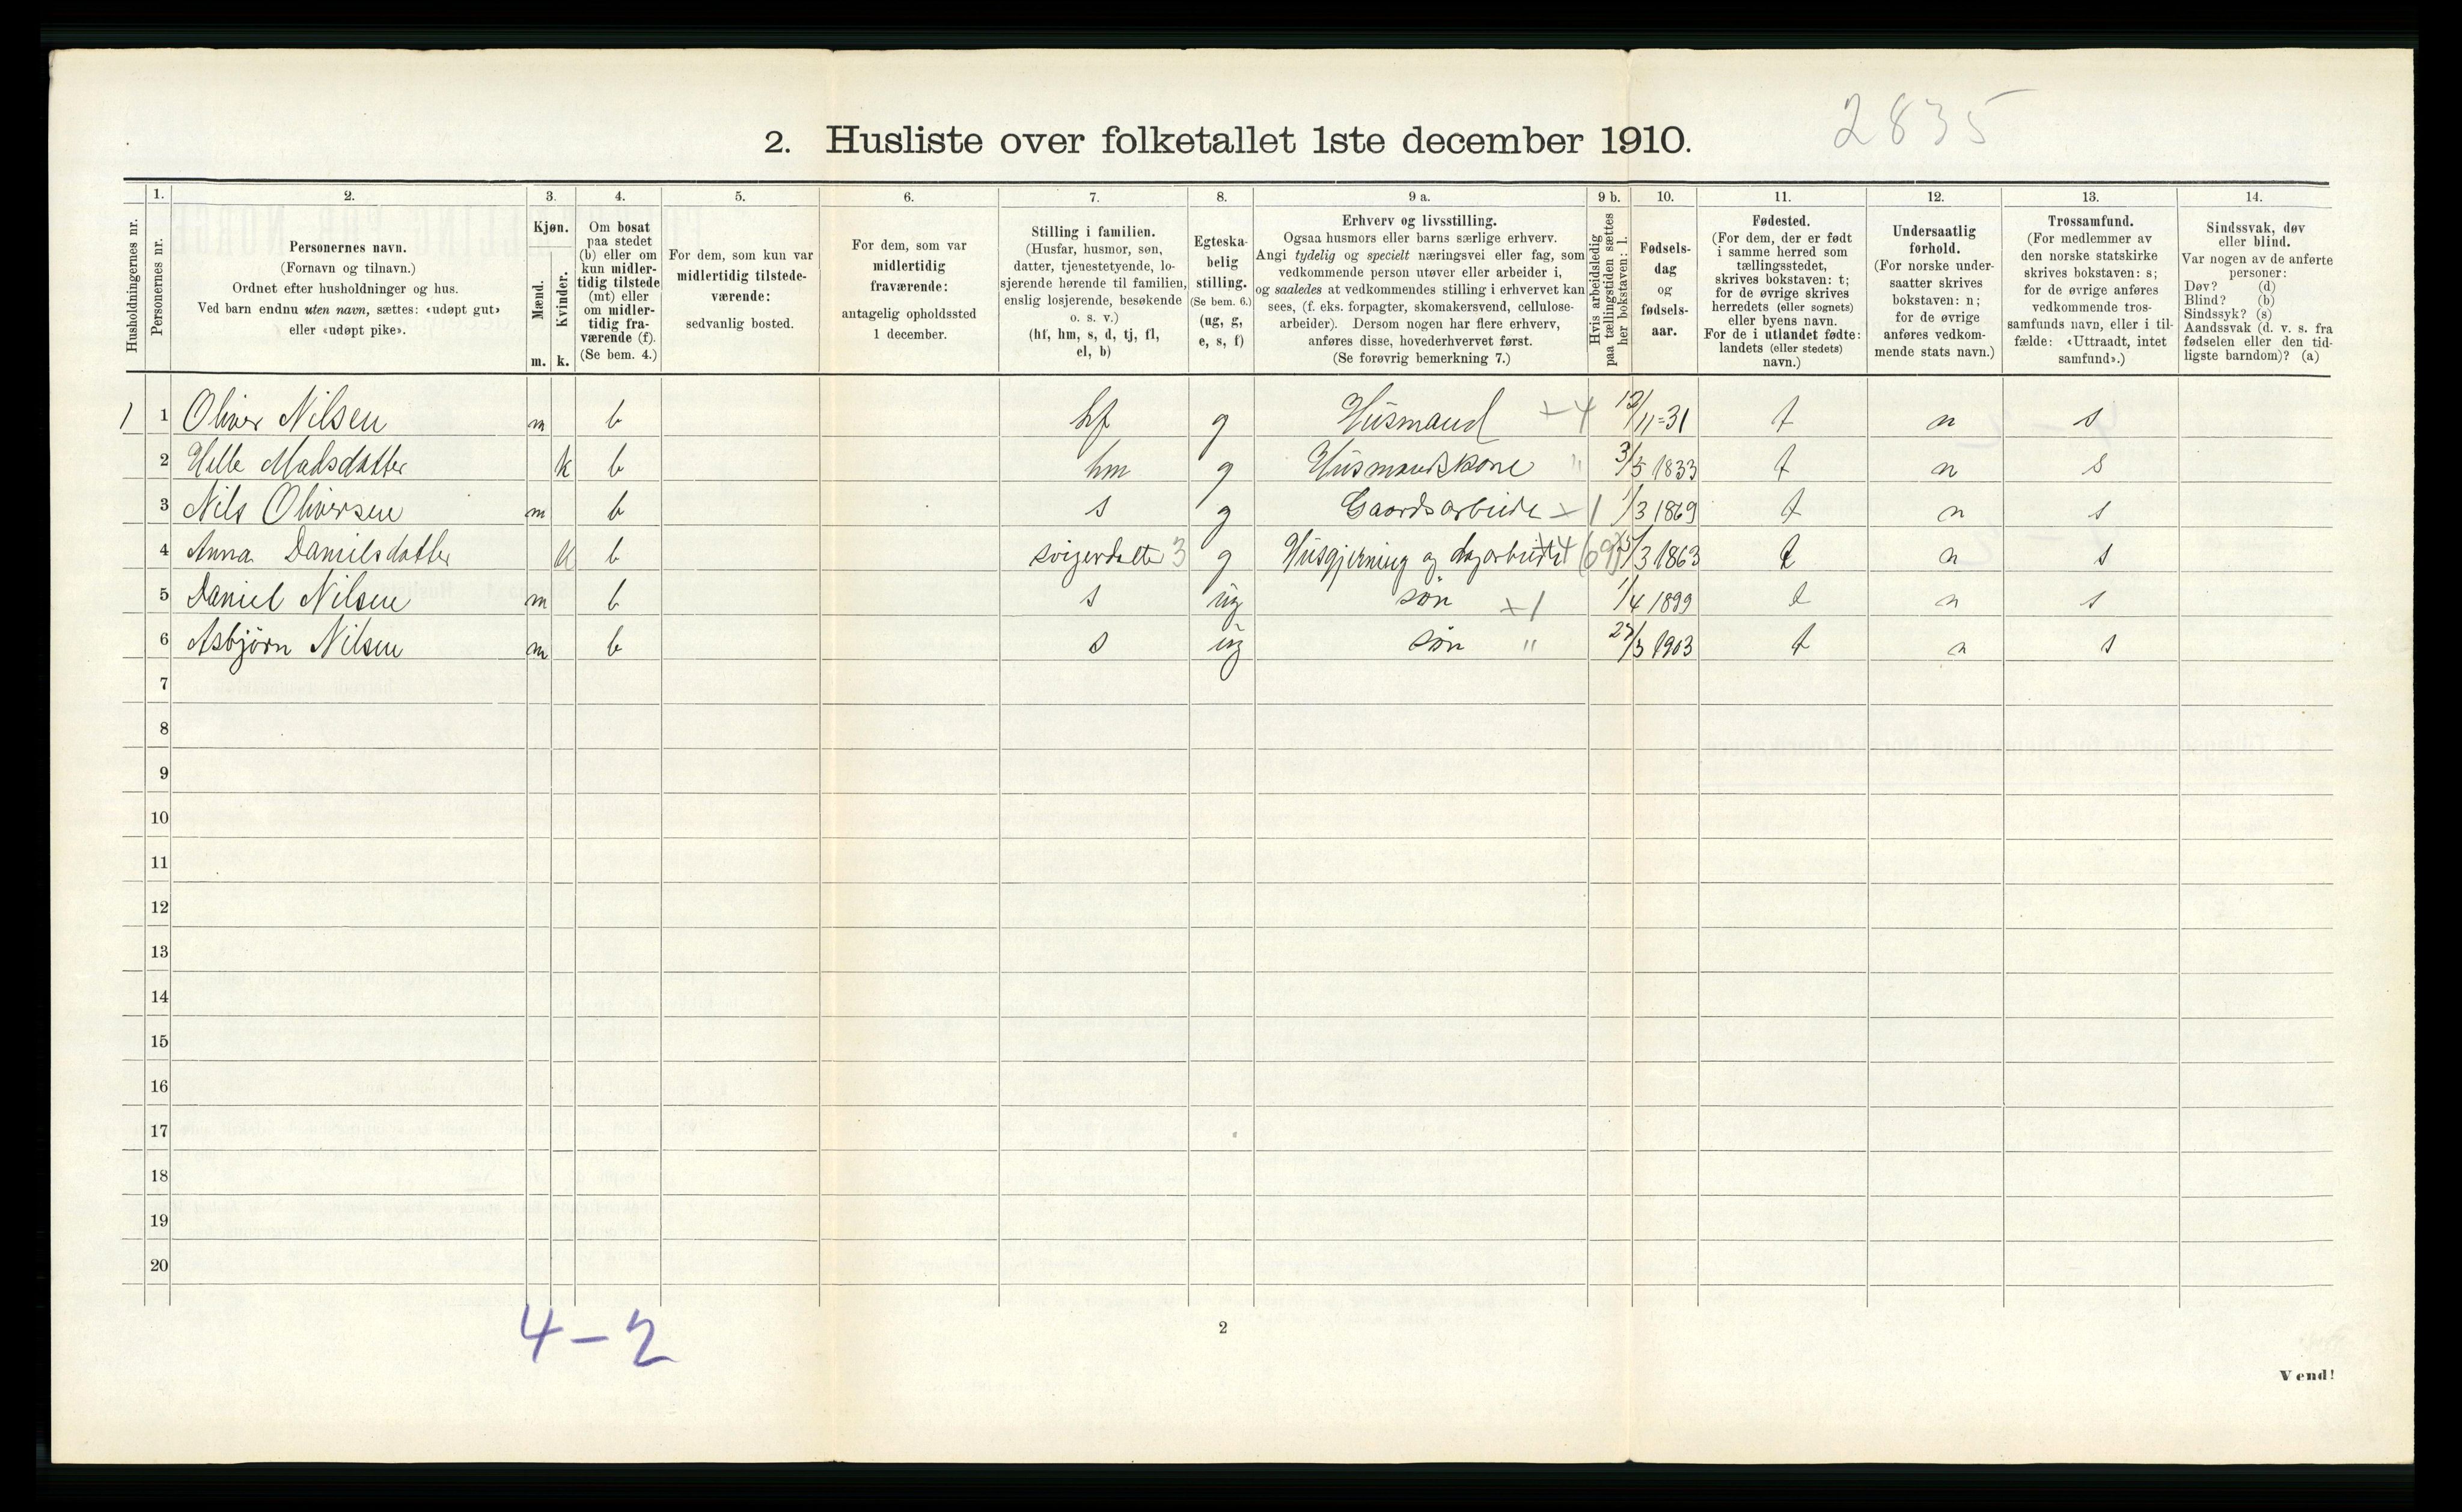 2835
2. Husliste over folketallet 1ste december 1910.
Husholdningernes nr.
1. Personernes nr.
2. Personernes navn. (Fornavn og tilnavn.) Ordnet efter husholdninger og hus. Ved barn endnu uten navn, sættes: «udøpt gut» eller «udøpt pike».
3. Kjøn. Mænd. m. Kvinder. k.
4. Om bosat paa stedet (b) eller om kun midlertidig tilstede (mt) eller om midlertidig fraværende (f). (Se bem. 4.)
5. For dem, som kun var midlertidig tilstedeværende: sedvanlig bosted.
6. For dem, som var midlertidig fraværende: antagelig opholdssted 1 december.
7. Stilling i familien. (Husfar, husmor, søn, datter, tjenestetyende, losjerende hørende til familien, enslig losjerende, besøkende o. s. v.) (hf, hm, s, d, tj, fl, el, b)
8. Egteskabelig stilling. (Se bem. 6.) (ug, g, e, s, f)
9 a. Erhverv og livsstilling. Ogsaa husmors eller barns særlige erhverv. Angi tydelig og specielt næringsvei eller fag, som vedkommende person utøver eller arbeider i, og saaledes at vedkommendes stilling i erhvervet kan sees, (f. eks. forpagter, skomakersvend, cellulosearbeider). Dersom nogen har flere erhverv, anføres disse, hovederhvervet først. (Se forøvrig bemerkning 7.)
9 b. Hvis arbeidsledig paa tællingstiden sættes her bokstaven: l.
10. Fødselsdag og fødselsaar.
11. Fødested. (For dem, der er født i samme herred som tællingsstedet, skrives bokstaven: t; for de øvrige skrives herredets (eller sognets) eller byens navn. For de i utlandet fødte: landets (eller stedets) navn.)
12. Undersaatlig forhold. (For norske undersaatter skrives bokstaven: n; for de øvrige anføres vedkommende stats navn.)
13. Trossamfund. (For medlemmer av den norske statskirke skrives bokstaven: s; for de øvrige anføres vedkommende trossamfunds navn, eller i tilfælde: «Uttraadt, intet samfund».)
14. Sindssvak, døv eller blind. Var nogen av de anførte personer: Døv? (d) Blind? (b) Sindssyk? (s) Aandssvak (d. v. s. fra fødselen eller den tidligste barndom)? (a)
1 1 Oliver Nilsen m b hf g Husmand x4 12/11=31 t n s
2 Madsdatter k b hm g Husmandskone " 3/5 1833 t n s
3 Nils Oliversen m b s g Gaardsarbeide x1 1/3 1869 t n s
4 Anna Danielsdatter k b svigerdatter 3 g Husgjerning og /3 1863 t n s
5 Daniel Nilsen m b s ug søn x1 1/4 1899 t n s
6 Asbjørn Nilsen m b s ug søn " /3 1903 t n s
7
8
9
10
11
12
13
14
15
16
17
18
19
20
4-2
2
Vend!